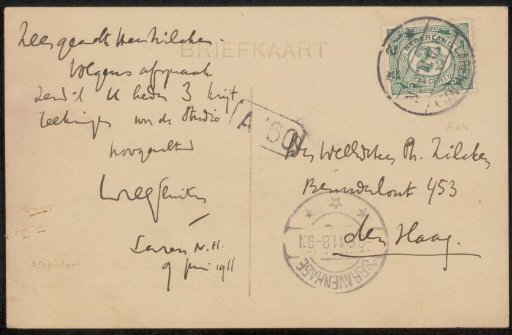 Zeer geachte Heer Zilcken.
Volgens afspraak
zend ik U heden 3 krijt
teekeningen van de Studio
hoogachtend
Laren N.H.
9 Juni 1911
BRIEFKAART
A '60
NEDERLAND
2½
CENT
Aan
Den Weledelen Ph. Zilcken
Bezuidenhout 453
den Haag.
'S GRAVENHAGE
11.8-9N
Afzender: